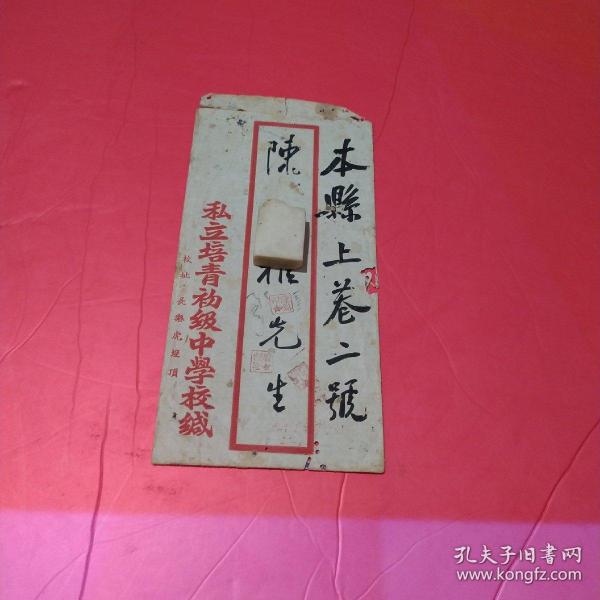 本縣上巷二號
陳
雅先生
私立培青初級中學校緘
校址:長樂虎堤頂
孔夫子旧书网
www.kongfz.com